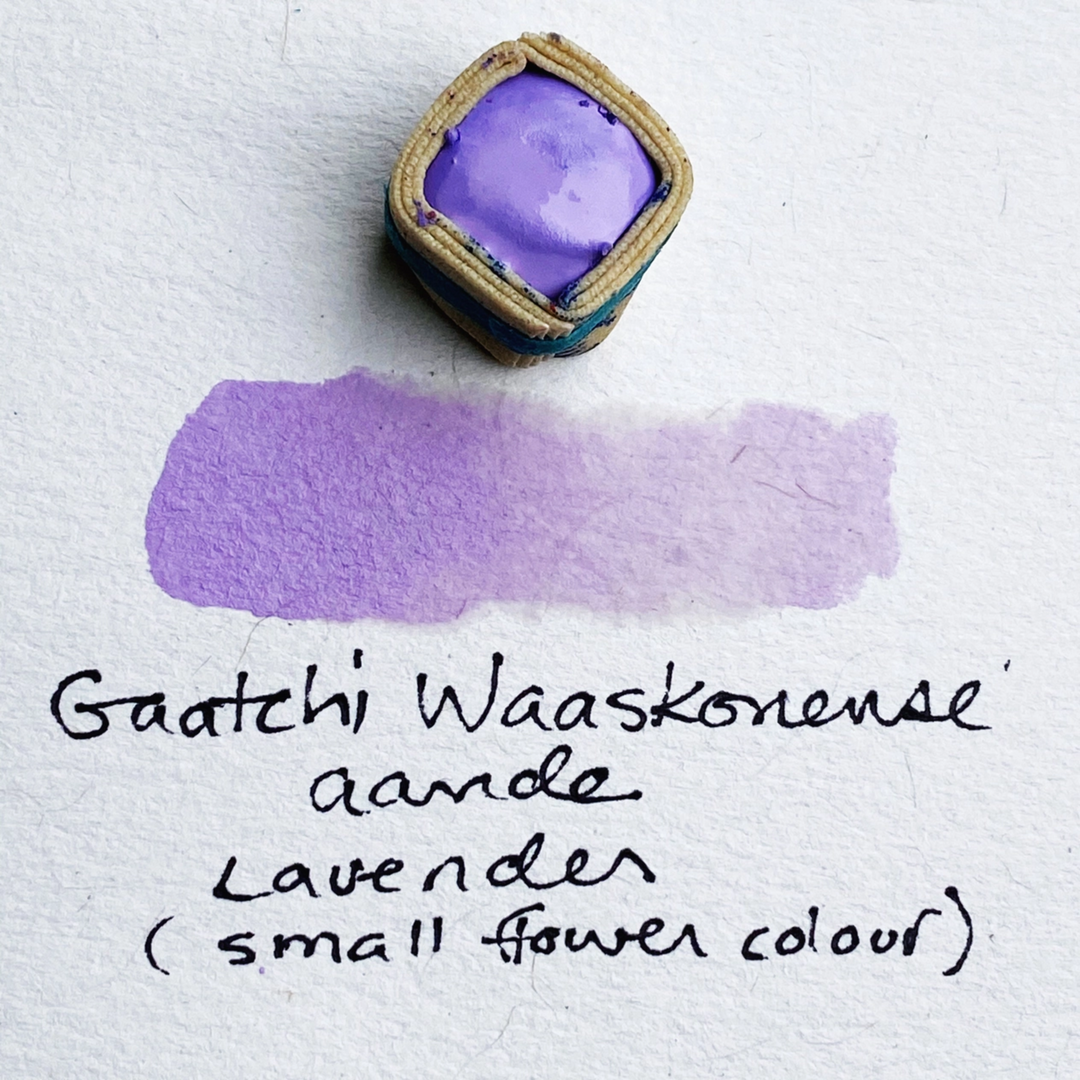 Gaatchi Waaskonense'
aande
Lavender
(small flower colour)